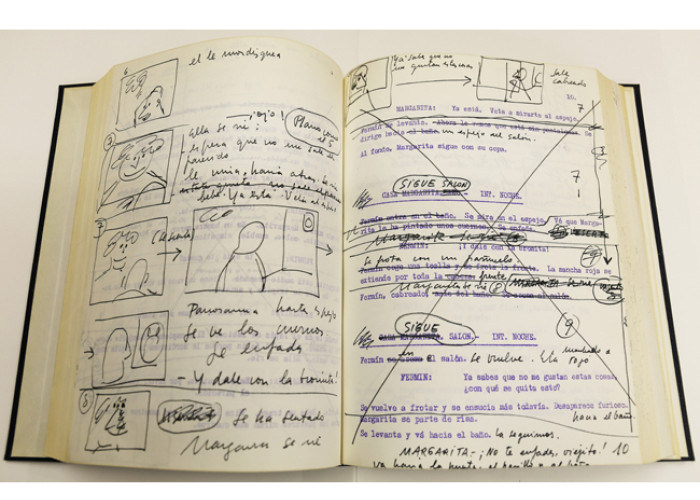 6
él le mordisquea
3
¡ojo!
Plano como el 5
Ella se ríe:
espera que no me sale el
parecido
le mira hacia atrás. Se ríe
bebe. Ya está. Vete al espejo
Panorámica hasta espejo
Se ve los cuernos
Se enfada
- Y dale con la bromita!
8
Se ha sentado
Margarita se ríe
Ya sabe que no
me gustan estas cosas
Sale
cabreado
30.
7
MARGARITA: Ya está. Vete a mirarte al espejo.
Fermín se levanta. Ahora le vemos que está sin pantalones. Se
dirige hacia el baño. un espejo del salón.
Al fondo, Margarita sigue con su copa.
7
1
SIGUE SALON
CASA MARGARITA. BAÑO.- INT. NOCHE.
Fermín entra en el baño. Se mira en el espejo. Vé que Marga-
rita le ha pintado unos cuernos. Se enfada.
FERMIN: ¡I dale con la bromita!
se frota con un pañuelo
Fermín coge una toalla y se frota la frente. La mancha roja se
extiende por toda la frente
Margarita se ríe 8
Fermín, cabreado, sale del baño.
9
SIGUE
CASA MARGARITA. SALON.- INT. NOCHE.
Fermín en el salón. se vuelve. Ella
rojo
FERMIN: Ya sabes que no me gustan estas cosas.
¿con qué se quita esto?
Se vuelve a frotar y se emancha más todavía. Desaparece furioso.
hacia el baño.
Margarita se parte de risa.
Se levanta y vá hacia el baño. la seguimos.
MARGARITA- ¡No te enfades, viejito! 10